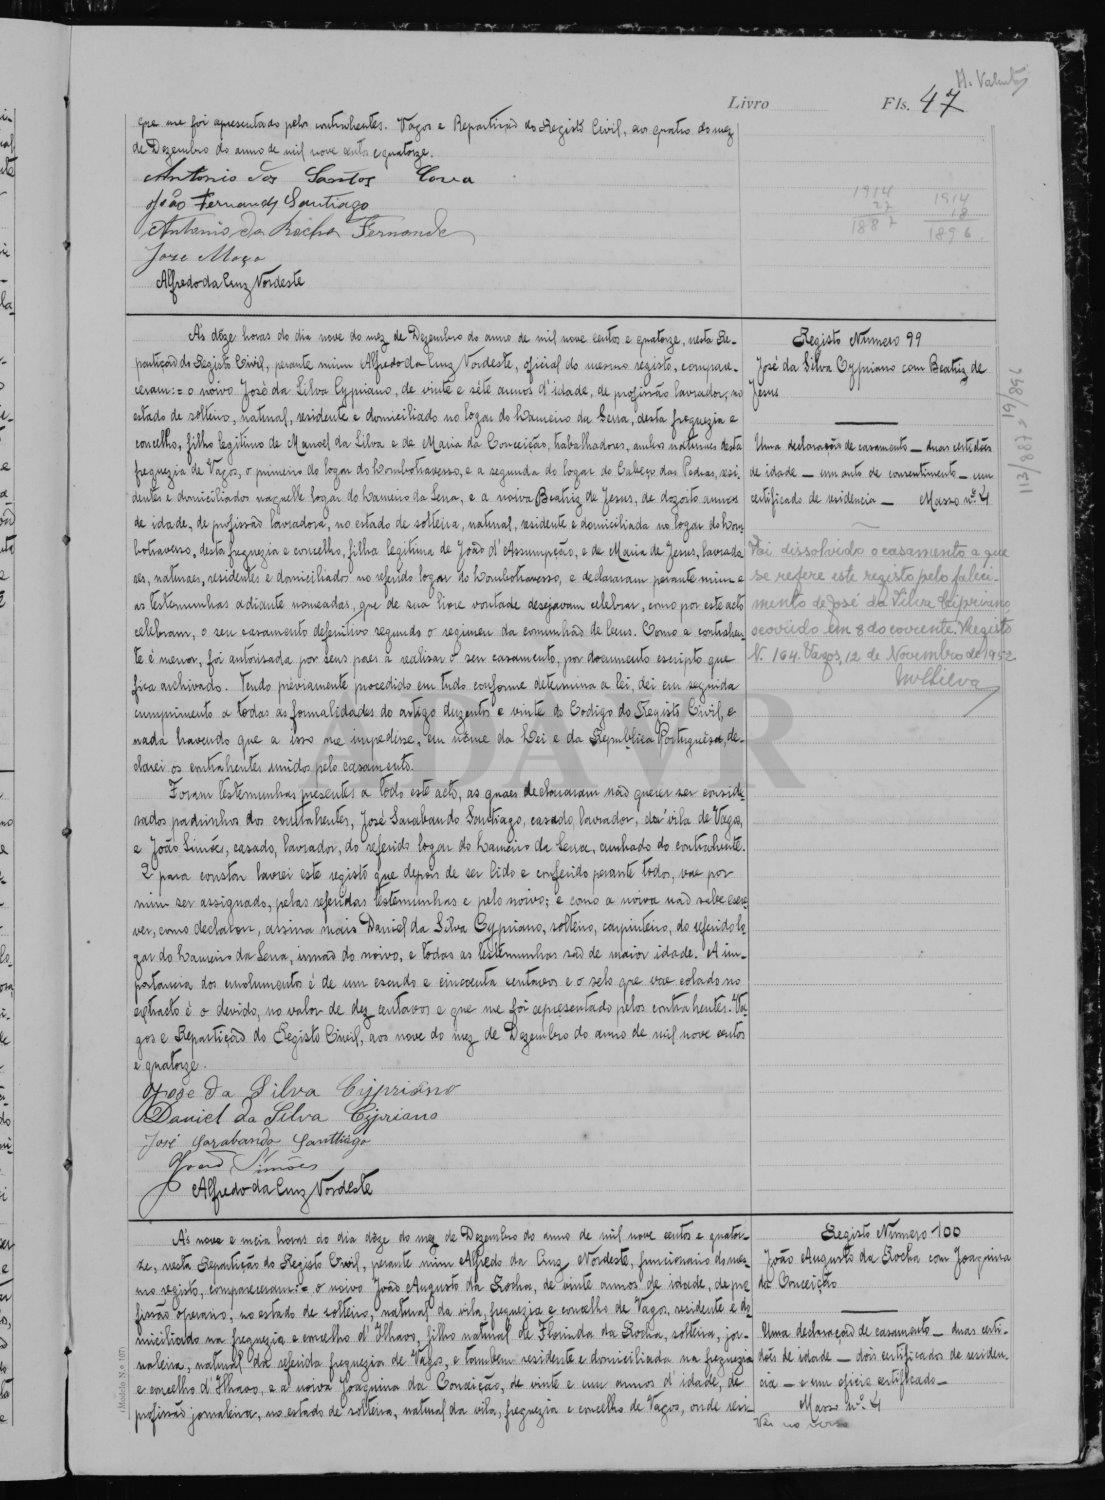 H. Valente
Livro Fls. 47
que me foi apresentado pelos contrahentes. Vagos e Repartição do Registo Civil, aos quatro do mez
de Dezembro do anno de mil nove centos e quatorze.
Antonio dos Santos
João Fernandes Santiago
Antonio da Rocha Fernandes
Jose
Alfredo da Cruz Nordeste
1914
27
1887
1914
18
1896
A's dôze horas do dia nove do mez de Dezembro do anno de mil nove centos e quatorze, nesta Re-
partição do Registo Civil, perante mim Alfredo da Cruz Nordeste, oficial do mesmo registo, compare-
ceram:= o noivo José da Silva Cypriano, de vinte e séte annos d'idade, de profissão lavrador, no
estado de solteiro, natural, residente e domiciliado no logar do Lameiro da Serra, desta freguezia e
concelho, filho legitimo de Manoel da Silva e de Maria da Conceição, trabalhadores, ambos naturaes desta
freguezia de Vagos, o primeiro do logar do Lombotravesso, e a segunda do logar do Cabeço das Pedras, resi-
dentes e domiciliados naquelle logar do Lameiro da Serra, e a noiva Beatriz de Jesus, de dezoito annos
de idade, de profissão lavradora, no estado de solteira, natural, residente e domiciliada no logar do Lom-
botravesso, desta freguezia e concelho, filha legitima de João d'Assumpção, e de Maria de Jesus, lavrado-
res, naturaes, residentes e domiciliados no referido logar do Lombotravesso, e declararam perante mim e
as testemunhas adiante nomeadas, que de sua livre vontade desejavam celebrar, como por este acto
celebram, o seu casamento definitivo segundo o regimen da comunhão de bens. Como a contrahen-
te é menor, foi autorisada por seus paes a realisar o seu casamento, por documento escripto que
fica archivado. Tendo préviamente procedido em tudo conforme determina a lei, dei em seguida
cumprimento a todas as formalidades do artigo duzentos e vinte do Codigo do Registo Civil, e
nada havendo que a isso me impedisse, em nome da Lei e da Republica Portugueza, de-
clarei os contrahentes unidos pelo casamento.
Foram testemunhas presentes a todo este acto, as quaes declararam não querer ser conside-
rados padrinhos dos contrahentes, José Sarabando Santiago, casado, lavrador, da vila de Vagos,
e João Simões, casado, lavrador, do referido logar do Lameiro da Serra, cunhado do contrahente.
E para constar lavrei este registo que depois de ser lido e conferido perante todos, vae por
mim ser assignado, pelas referidas testemunhas e pelo noivo; e como a noiva não sabe escre-
ver, como declarou, assina mais Daniel da Silva Cypriano, solteiro, carpinteiro, do referido lo-
gar do Lameiro da Serra, irmão do noivo, e todas as testemunhas são de maior idade. A im-
portancia dos emolumentos é de um escudo e cincoenta centavos e o selo que vae colado no
extracto é o devido, no valor de dez centavos e que me foi apresentado pelos contrahentes. Va-
gos e Repartição do Registo Civil, aos nove do mez de Dezembro do anno de mil nove centos
e quatorze.
Jose da Silva Cypriano
Daniel da Silva Cypriano
José Sarabando Santtiago
João Simões
Alfredo da Cruz Nordeste
Registo Número 99
José da Silva Cypriano com Beatriz de
Jesus
Uma declaração de casamento — duas certidões
de idade — um auto de consentimento — um
certificado de residencia — Masso nº. 4
Foi dissolvido o casamento a que
se refere este registo pelo faleci-
mento de José da Silva Cipriano,
ocorrido em 8 do corrente. Registo
N. 164. Vagos, 12 de Novembro de 1952
ADAVR
A's nove e meia horas do dia dôze do mez de Dezembro do anno de mil nove centos e quator-
ze, nesta Repartição do Registo Civil, perante mim Alfredo da Cruz Nordeste, funcionario do mes-
mo registo, compareceram:= o noivo João Augusto da Rocha, de vinte annos de idade, de pro-
fissão operario, no estado de solteiro, natural da vila, freguezia e concelho de Vagos, residente e do-
miciliado na freguezia e concelho d'Ilhavo, filho natural de Florinda da Rocha, solteira, jor-
naleira, natural da referida freguezia de Vagos, e tambem residente e domiciliada na freguezia
e concelho d'Ilhavo, e a noiva Joaquina da Conceição, de vinte e um annos d'idade, de
profissão jornaleira, no estado de solteira, natural da vila, freguezia e concelho de Vagos, onde resi-
Registo Número 100
João Augusto da Rocha com Joaquina
da Conceição
Uma declaração de casamento — duas certi-
dões de idade — dois certificados de residen-
cia — e um oficio certificado —
Masso nº. 4
Vêr no verso
(Modelo N.º 107)